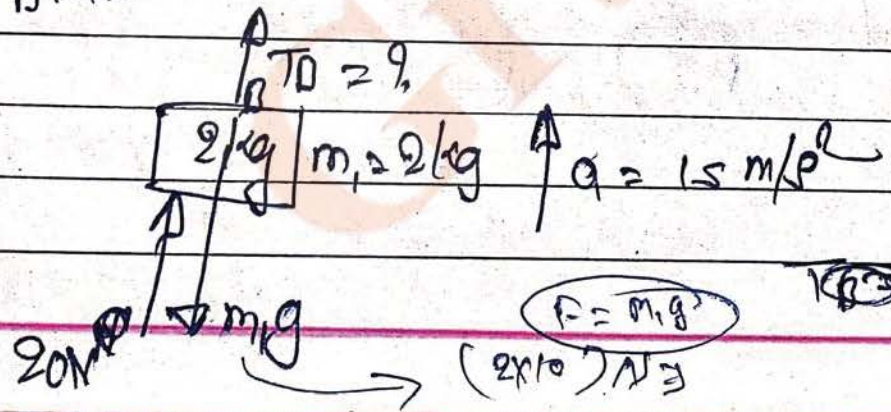 TB = ?
2 kg m₁ = 2 kg a = 15 m/s²
20N m₁g F = m₁g
(2×10) N